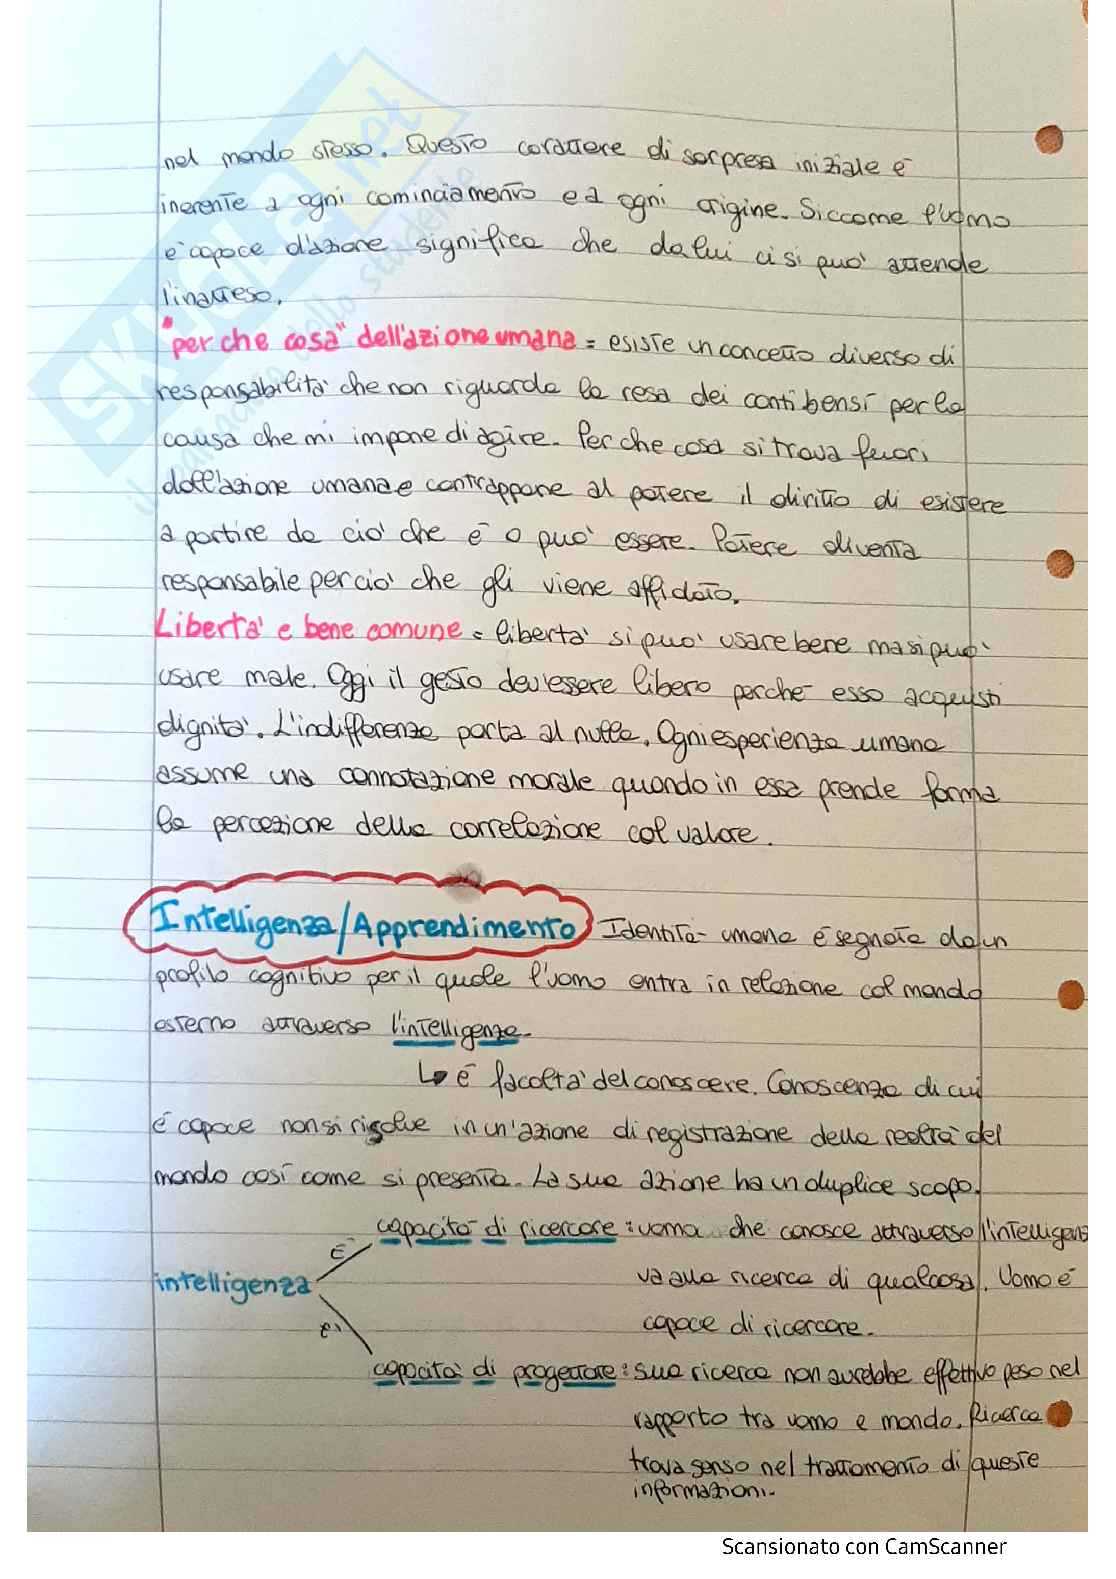 nel mondo stesso. Questo carattere di sorpresa iniziale è
inerente a ogni cominciamento ed a ogni origine. Siccome l'uomo
è capace d'azione significa che da lui ci si può attende
l'inatteso.
"per che cosa" dell'azione umana = esiste un concetto diverso di
responsabilità che non riguarda la resa dei conti bensì per la
causa che mi impone di agire. Per che cosa si trova fuori
dall'azione umana e contrappone al potere il diritto di esistere
a partire da ciò che è o può essere. Potere diventa
responsabile per ciò che gli viene affidato.
Libertà e bene comune = libertà si può usare bene ma si può
usare male. Oggi il gesto dev'essere libero perchè esso acquisti
dignità. L'indifferenza porta al nulla. Ogni esperienza umana
assume una connotazione morale quando in essa prende forma
la percezione della correlazione col valore.
Intelligenza/Apprendimento Identità umana è segnata da un
profilo cognitivo per il quale l'uomo entra in relazione col mondo
esterno attraverso l'intelligenza.
↳ è facoltà del conoscere. Conoscenza di cui
è capace non si risolve in un'azione di registrazione della realtà del
mondo così come si presenta. La sua azione ha un duplice scopo.
È capacità di ricercare: uomo che conosce attraverso l'intelligenz
va alla ricerca di qualcosa. Uomo è
intelligenza
capace di ricercare.
è capacità di progettare: sua ricerca non avrebbe effettivo peso nel
rapporto tra uomo e mondo. Ricerca
trova senso nel trattamento di queste
informazioni.
SKUOLA.net
il paradiso dello studente
Scansionato con CamScanner